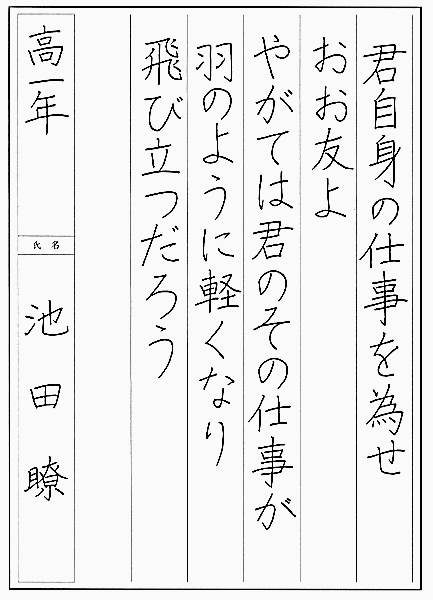 君自身の仕事を為せ
おお友よ
やがては君のその仕事が
羽のように軽くなり
飛び立つだろう
高一年
氏名
池田瞭